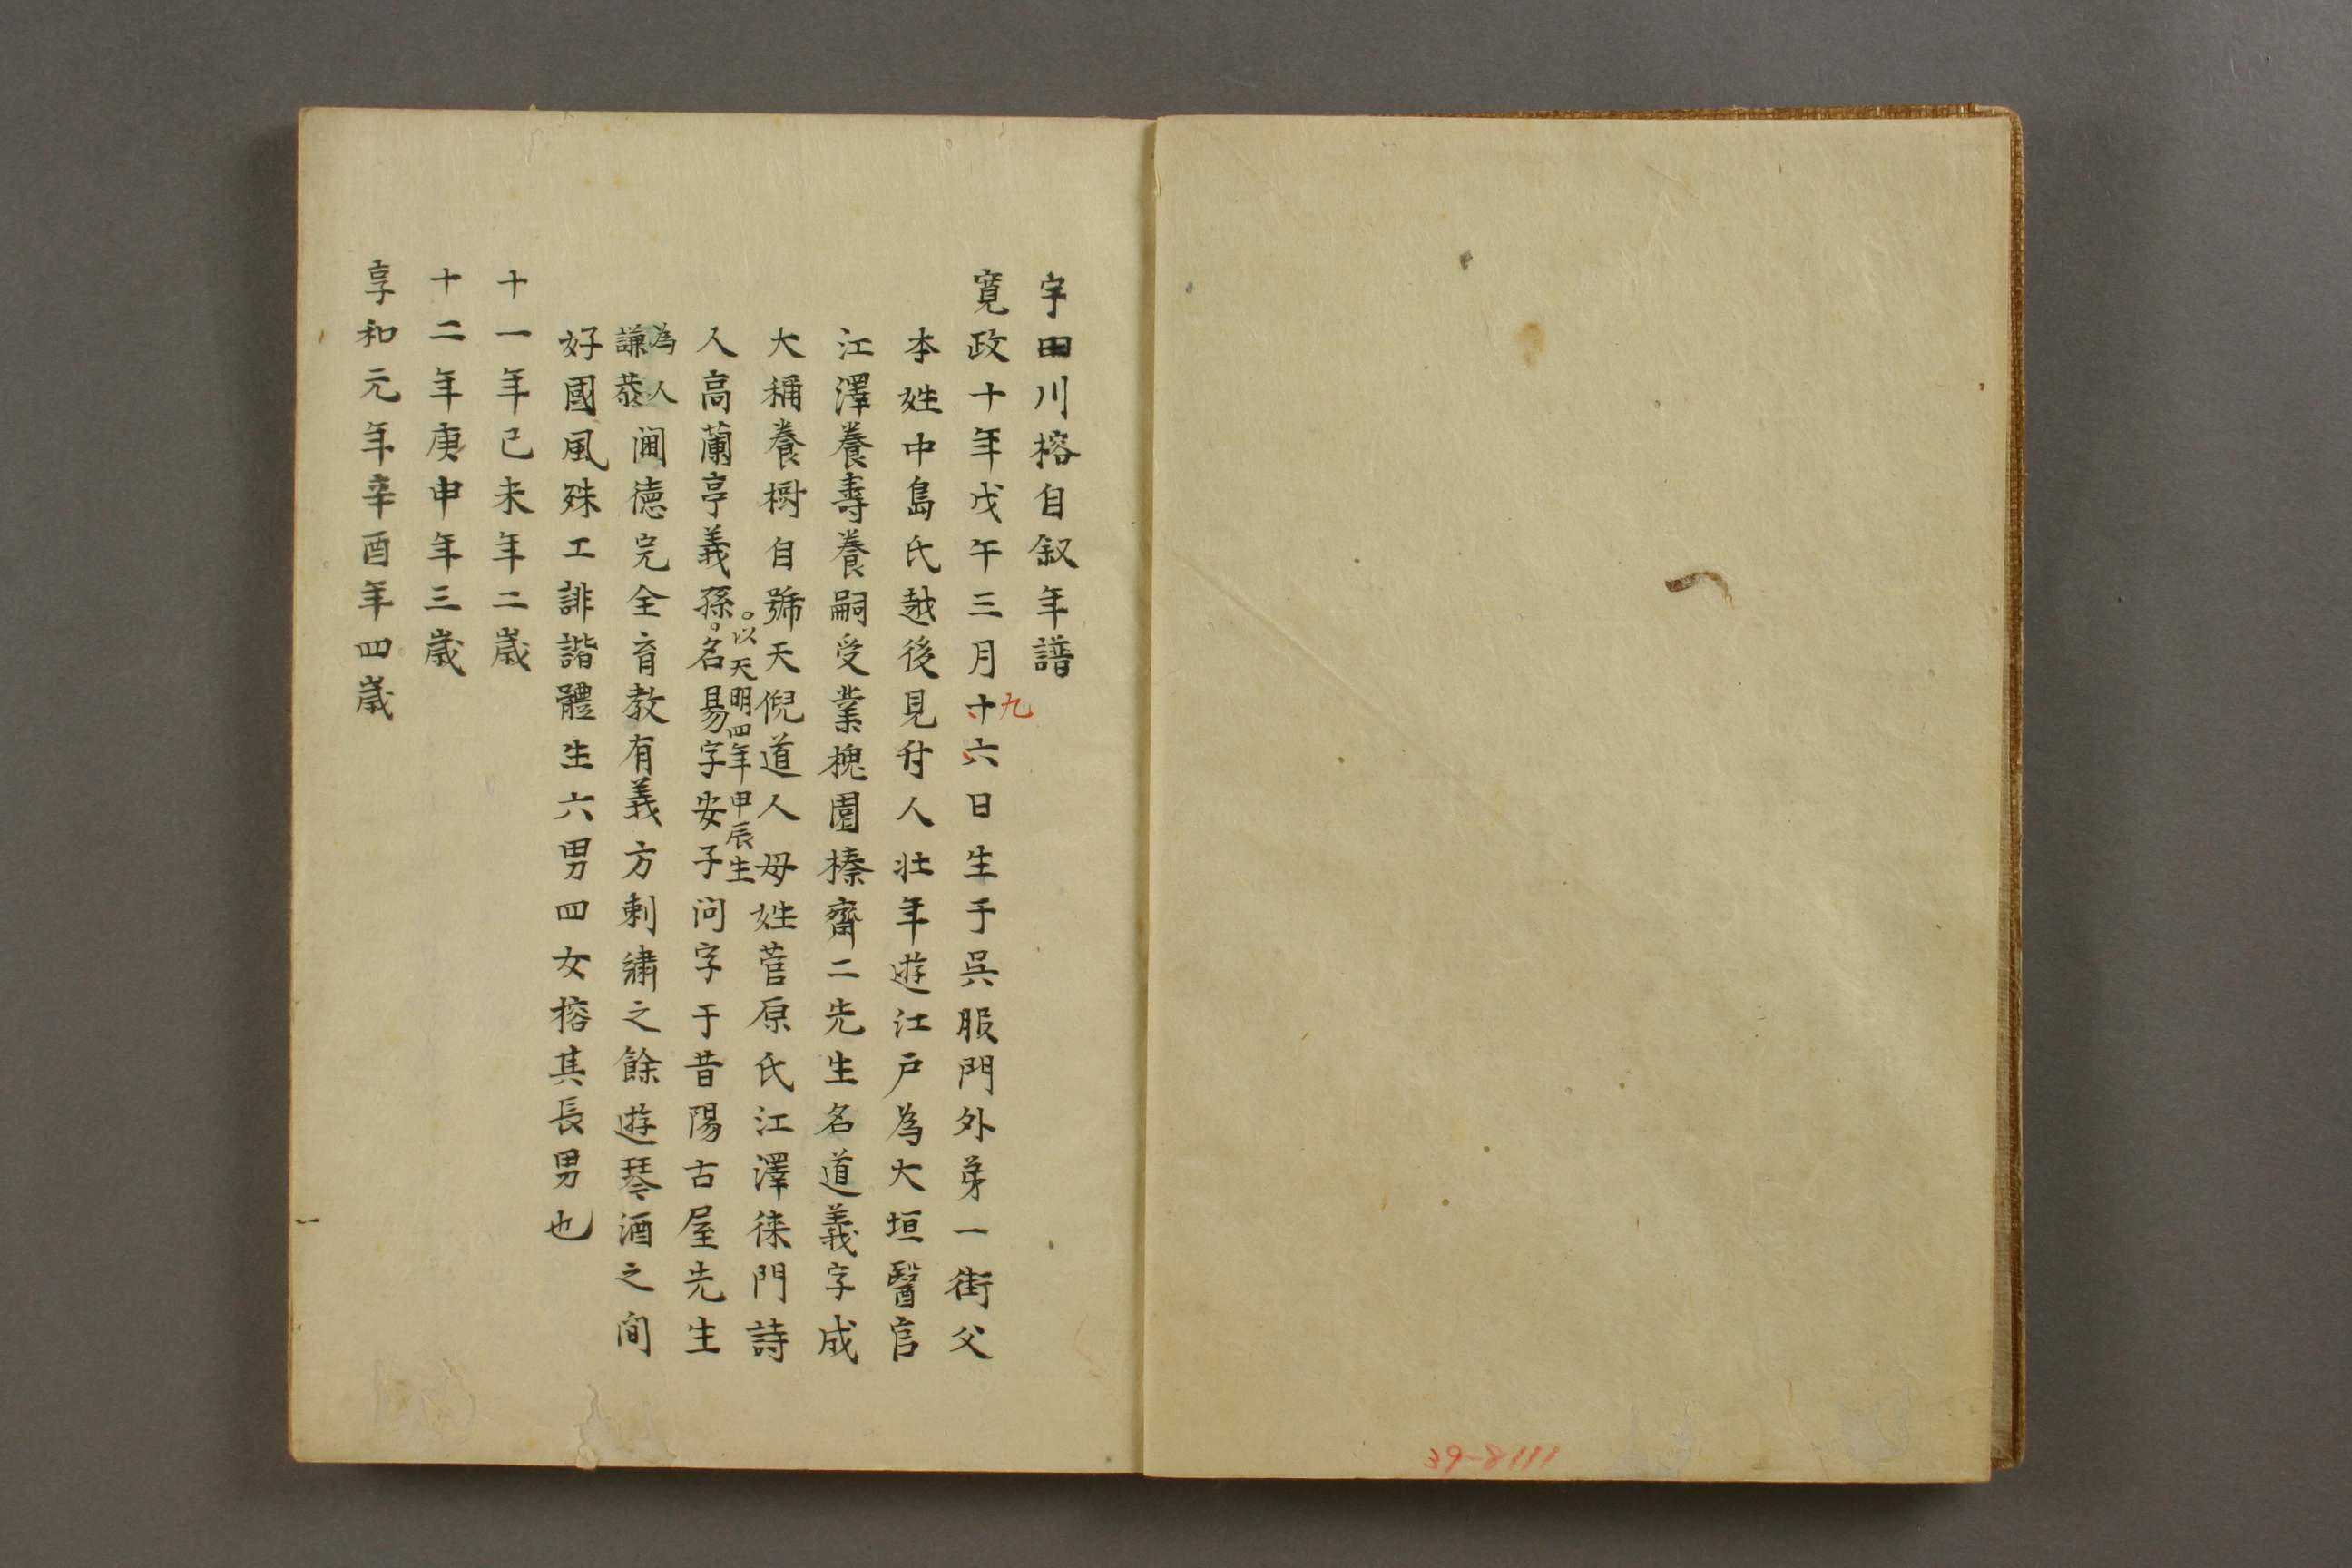 宇田川榕自叙年譜
寛政十年戊午三月十六日生于呉服門外弟一街父
九
本姓中島氏越後見付人壮年遊江戸為大垣醫官
江澤養壽養嗣受業槐園榛齋二先生名道義字成
大稱養樹自號天倪道人母姓菅原氏江澤徠門詩
。以天明四年甲辰生
人高蘭亭義孫。名易字安子问字于昔陽古屋先生
為人
謙恭閫徳完全育教有義方刺繍之餘遊琴酒之间
好國風殊工誹諧體生六男四女榕其長男也
十一年己未年二歳
十二年庚申年三歳
享和元年辛酉年四歳
一
39-8111